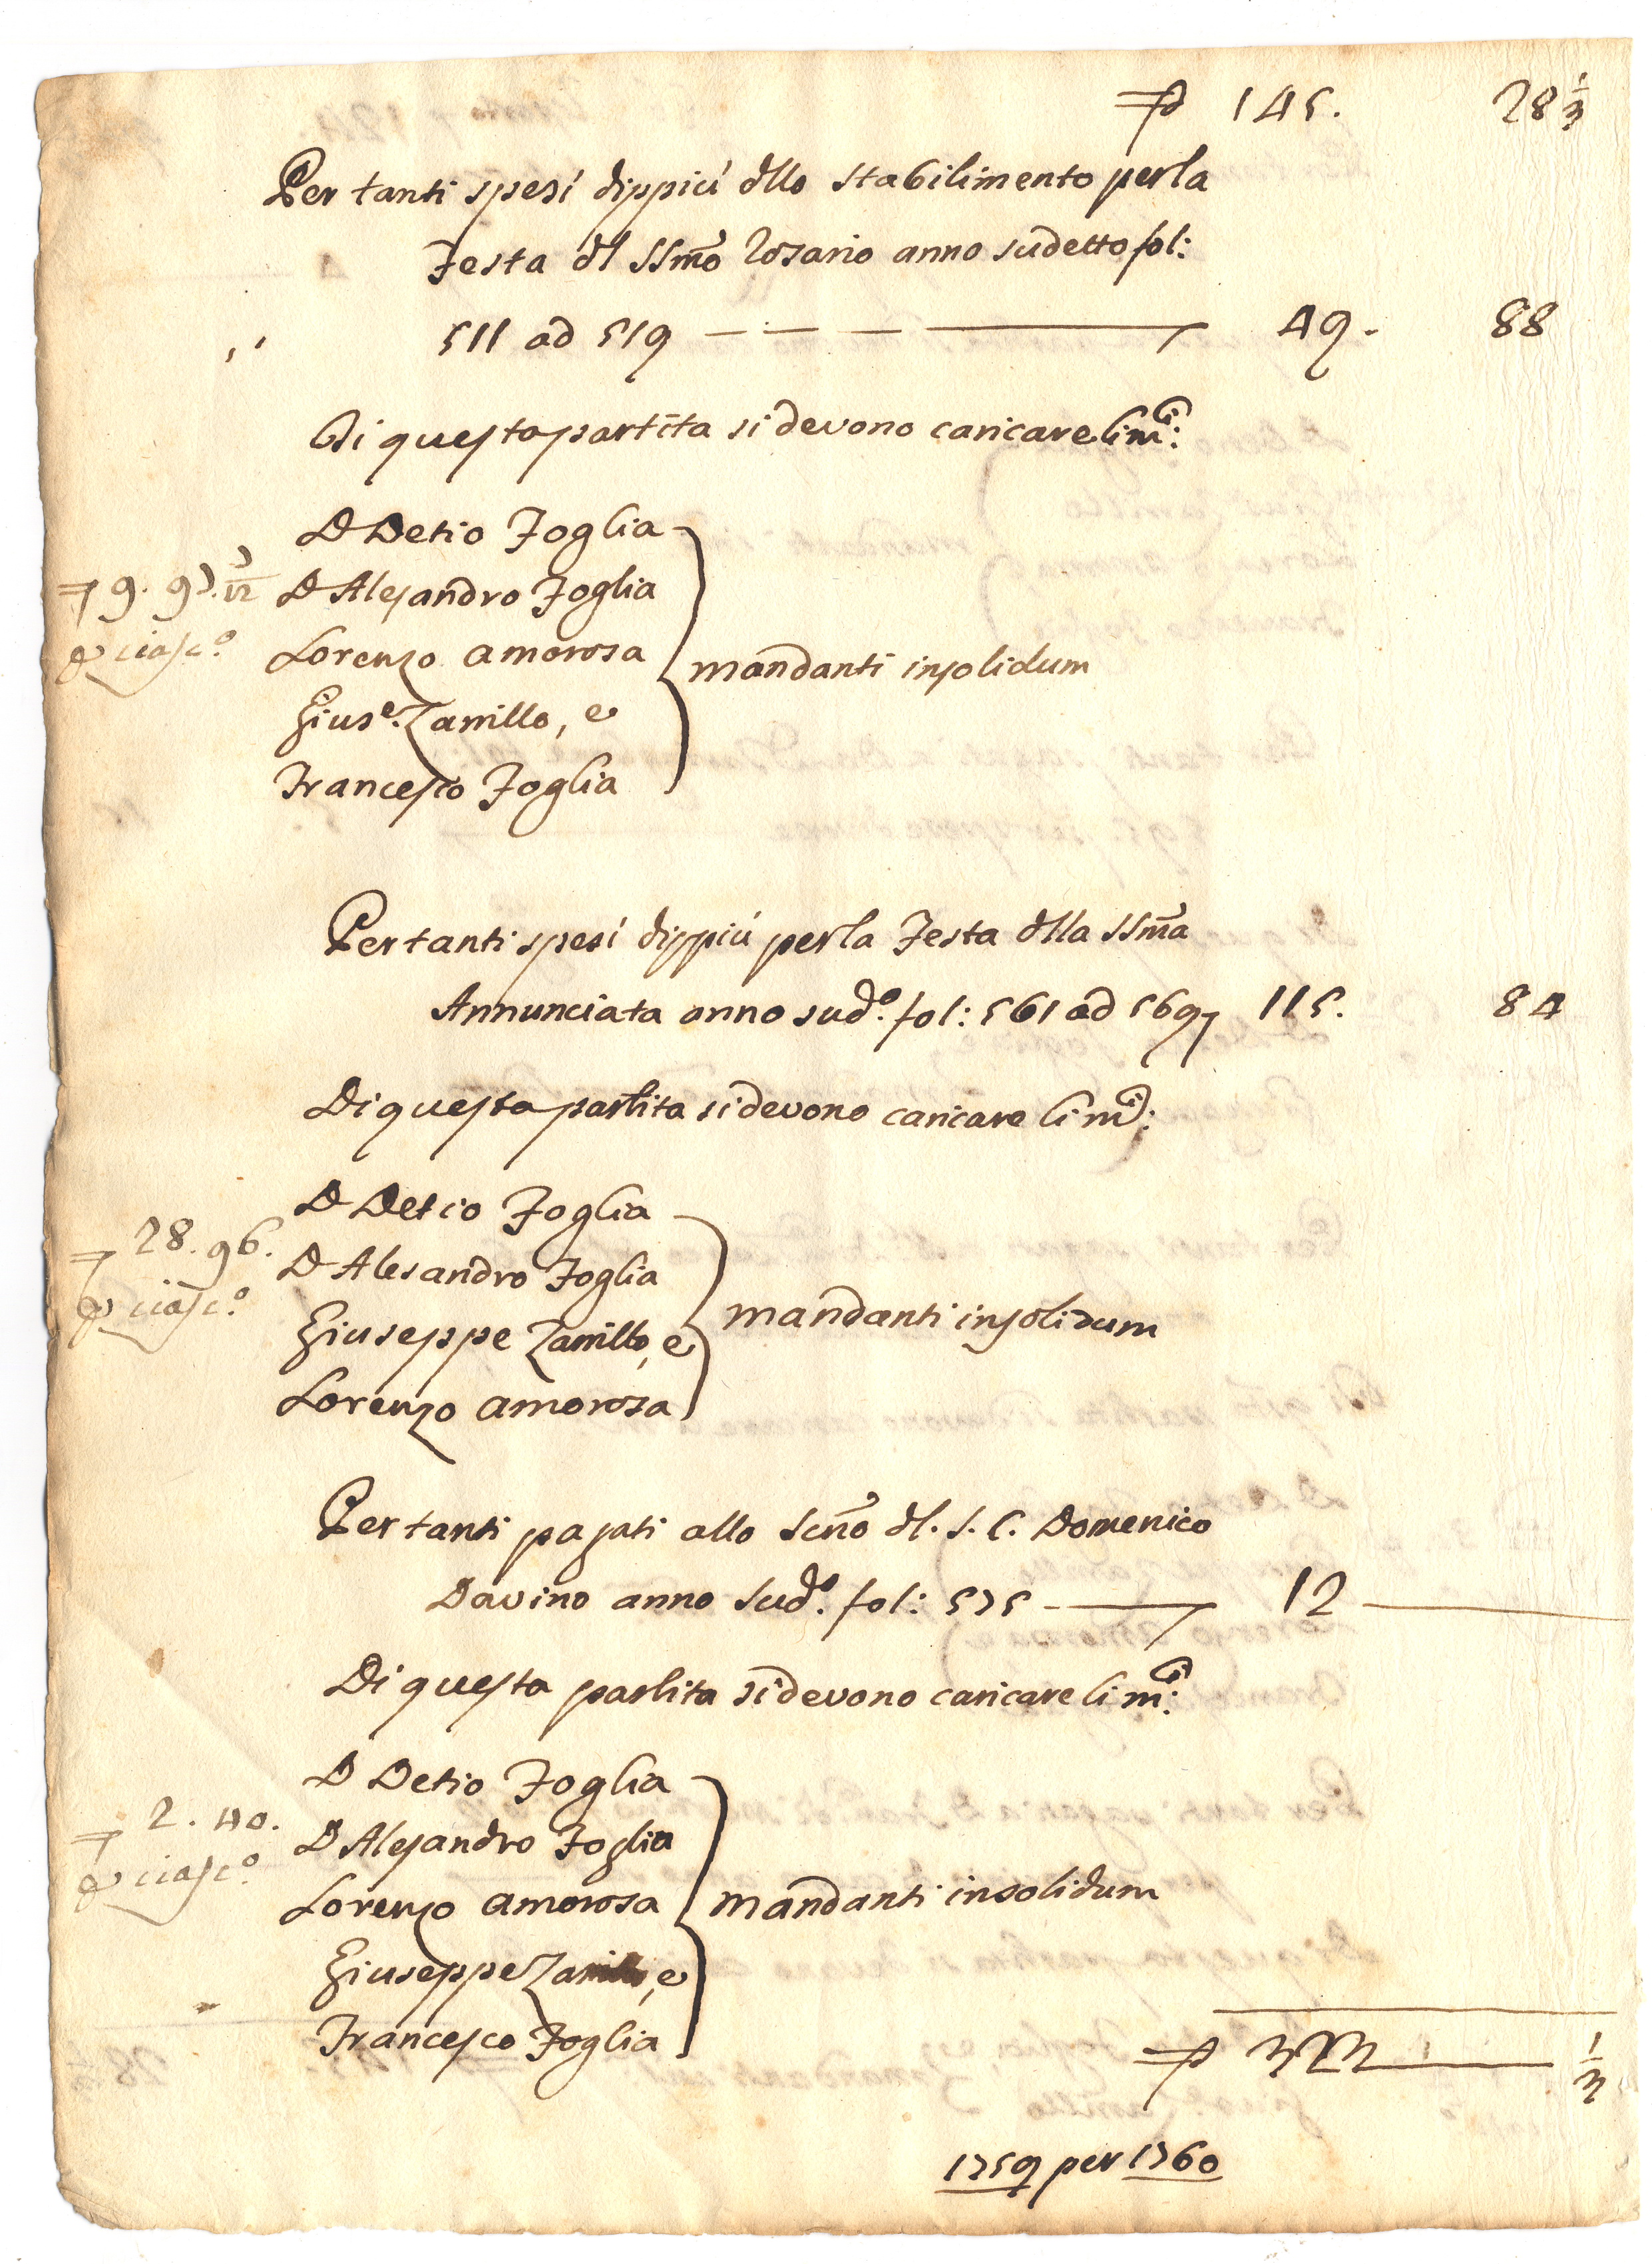 ⹀₽ 145. 28 1/3
Per tanti spesi dippiù dllo stabilimento per la
Festa dl SSmo Rosario anno sudetto fol:
511 ad 519 — — — ——— 49. 88
Di questa partita si devono caricare li mci:
D Detio Foglia
9. 97. 7/12 D Alesandro Foglia
p ciasco. Lorenzo Amorosa mandanti insolidum
Giuse. Zarrillo, e
Francesco Foglia
Per tanti spesi dippiù per la Festa dlla SSma
Annunciata anno sudo. fol: 561 ad 569 115. 84
Di questa partita si devono caricare li mci:
D Detio Foglia
28. 96. D Alesandro Foglia
p ciasco. Giuseppe Zarrillo, e mandanti insolidum
Lorenzo Amorosa
Per tanti pagati allo Scno dl. S. C. Domenico
Davino anno sudo. fol: 575 —— 12 ——
Di questa partita si devono caricare li mci:
D Detio Foglia
2. 40. D Alesandro Foglia
p ciasco. Lorenzo Amorosa mandanti insolidum
Giuseppe Zarrillo, e
Francesco Foglia
323 —— 1/3
1759 per 1760